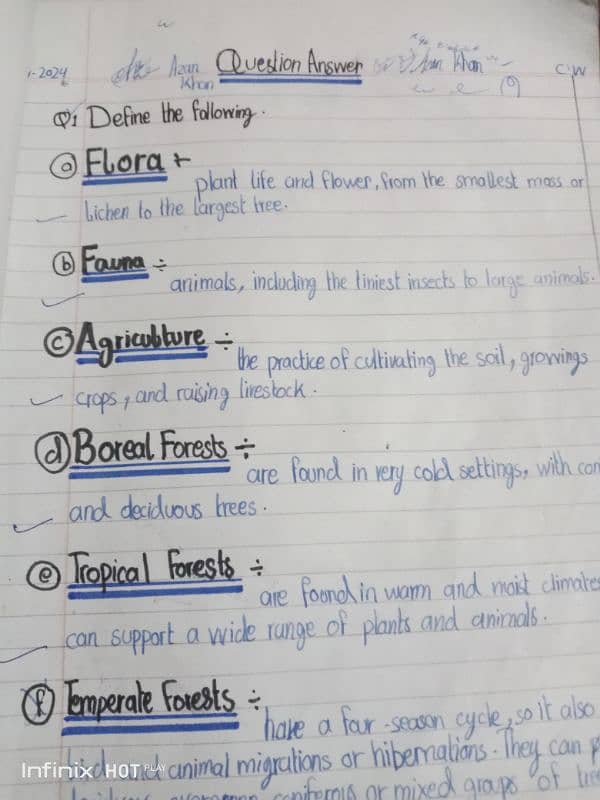 1-2024 Azan Khan Question Answer Khan C.W
Q1 Define the following.
(a) Flora ÷
plant life and flower, from the smallest moss or
lichen to the largest tree.
(b) Fauna ÷
animals, including the tiniest insects to large animals.
(c) Agriculture ÷
the practice of cultivating the soil, growings
crops, and raising livestock.
(d) Boreal Forests ÷
are found in very cold settings, with con
and deciduous trees.
(e) Tropical Forests ÷
are found in warm and moist climates
can support a wide range of plants and animals.
(f) Temperate Forests ÷
have a four-season cycle, so it also
animal migrations or hibernations. They can
Infinix HOT PLAY
or mixed of